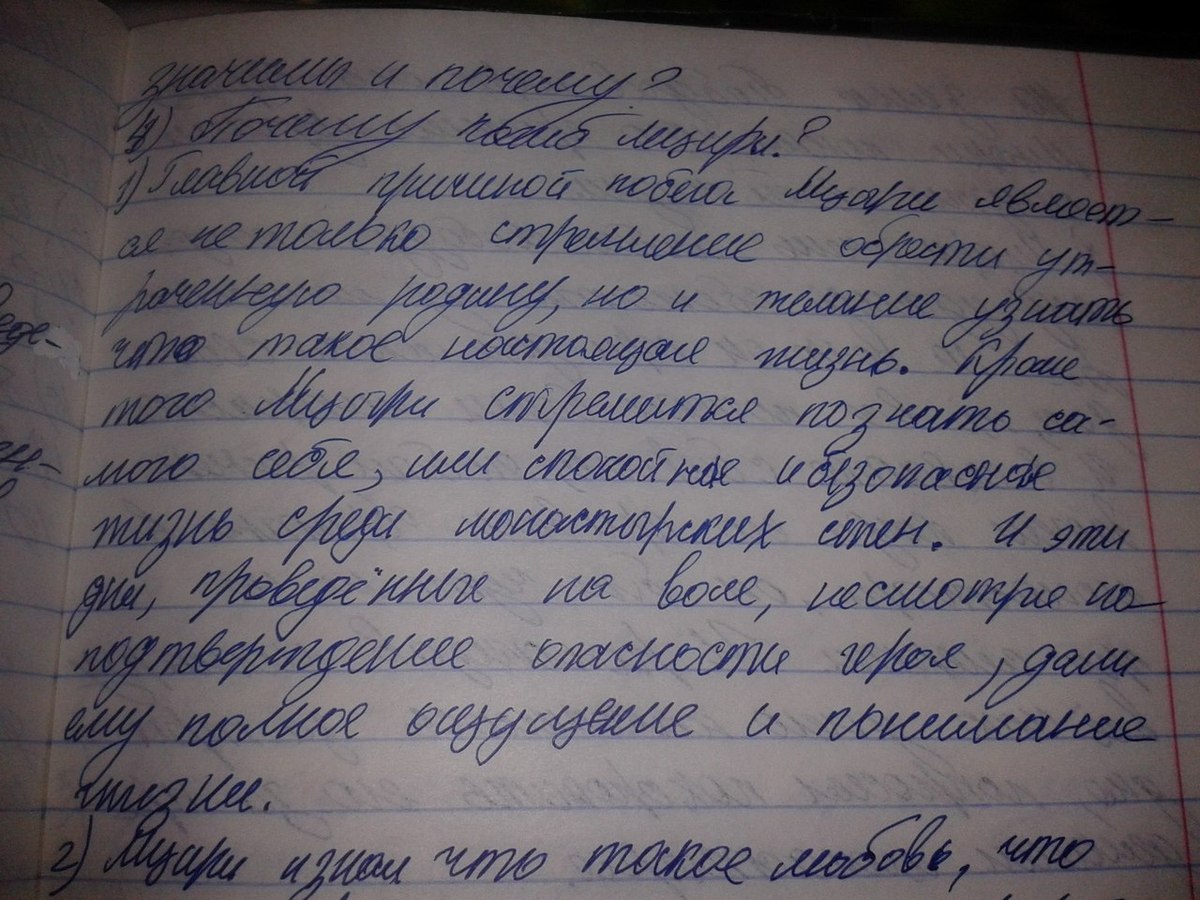 значимы и почему?
4) Почему погиб мцыри?
1) Главной причиной побега Мцари являет-
ся не только стремление обрести ут-
раченную родину, но и желание узнать
что такое настоящая жизнь. Кроме
того Мцыри стремиться познать са-
мого себя, или спокойная и безопасная
жизнь среди монастырских стен. И эти
дни, проведённые на воле, несмотря на
подтверждение опасности героя, дали
ему полное ощущение и понимание
жизни.
2) Мцари узнал что такое любовь, что